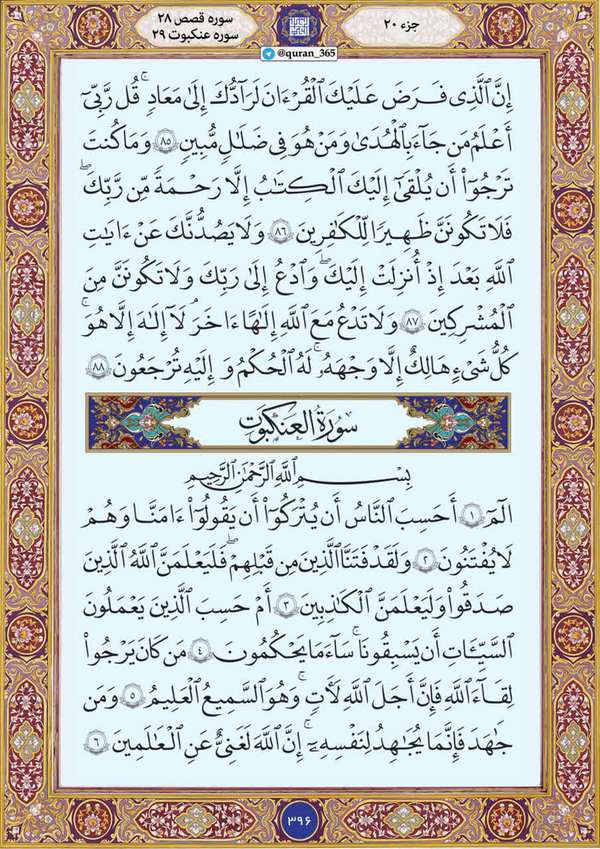 سوره قصص ۲۸
سوره عنکبوت ۲۹
جزء ۲۰
@quran_365
إِنَّ ٱلَّذِى فَرَضَ عَلَيْكَ ٱلْقُرْءَانَ لَرَآدُّكَ إِلَىٰ مَعَادٍ ۚ قُل رَّبِّىٓ
أَعْلَمُ مَن جَآءَ بِٱلْهُدَىٰ وَمَنْ هُوَ فِى ضَلَـٰلٍ مُّبِينٍ ۝٨٥ وَمَا كُنتَ
تَرْجُوٓا۟ أَن يُلْقَىٰٓ إِلَيْكَ ٱلْكِتَـٰبُ إِلَّا رَحْمَةً مِّن رَّبِّكَ ۖ
فَلَا تَكُونَنَّ ظَهِيرًا لِّلْكَـٰفِرِينَ ۝٨٦ وَلَا يَصُدُّنَّكَ عَنْ ءَايَـٰتِ
ٱللَّهِ بَعْدَ إِذْ أُنزِلَتْ إِلَيْكَ ۖ وَٱدْعُ إِلَىٰ رَبِّكَ وَلَا تَكُونَنَّ مِنَ
ٱلْمُشْرِكِينَ ۝٨٧ وَلَا تَدْعُ مَعَ ٱللَّهِ إِلَـٰهًا ءَاخَرَ ۘ لَآ إِلَـٰهَ إِلَّا هُوَ ۚ
كُلُّ شَىْءٍ هَالِكٌ إِلَّا وَجْهَهُۥ ۚ لَهُ ٱلْحُكْمُ وَإِلَيْهِ تُرْجَعُونَ ۝٨٨
سورة العنكبوت
بِسْمِ ٱللَّهِ ٱلرَّحْمَـٰنِ ٱلرَّحِيمِ
الٓمٓ ۝١ أَحَسِبَ ٱلنَّاسُ أَن يُتْرَكُوٓا۟ أَن يَقُولُوٓا۟ ءَامَنَّا وَهُمْ
لَا يُفْتَنُونَ ۝٢ وَلَقَدْ فَتَنَّا ٱلَّذِينَ مِن قَبْلِهِمْ ۖ فَلَيَعْلَمَنَّ ٱللَّهُ ٱلَّذِينَ
صَدَقُوا۟ وَلَيَعْلَمَنَّ ٱلْكَـٰذِبِينَ ۝٣ أَمْ حَسِبَ ٱلَّذِينَ يَعْمَلُونَ
ٱلسَّيِّـَٔاتِ أَن يَسْبِقُونَا ۚ سَآءَ مَا يَحْكُمُونَ ۝٤ مَن كَانَ يَرْجُوا۟
لِقَآءَ ٱللَّهِ فَإِنَّ أَجَلَ ٱللَّهِ لَـَٔاتٍ ۚ وَهُوَ ٱلسَّمِيعُ ٱلْعَلِيمُ ۝٥ وَمَن
جَـٰهَدَ فَإِنَّمَا يُجَـٰهِدُ لِنَفْسِهِۦٓ ۚ إِنَّ ٱللَّهَ لَغَنِىٌّ عَنِ ٱلْعَـٰلَمِينَ ۝٦
۳۹۶